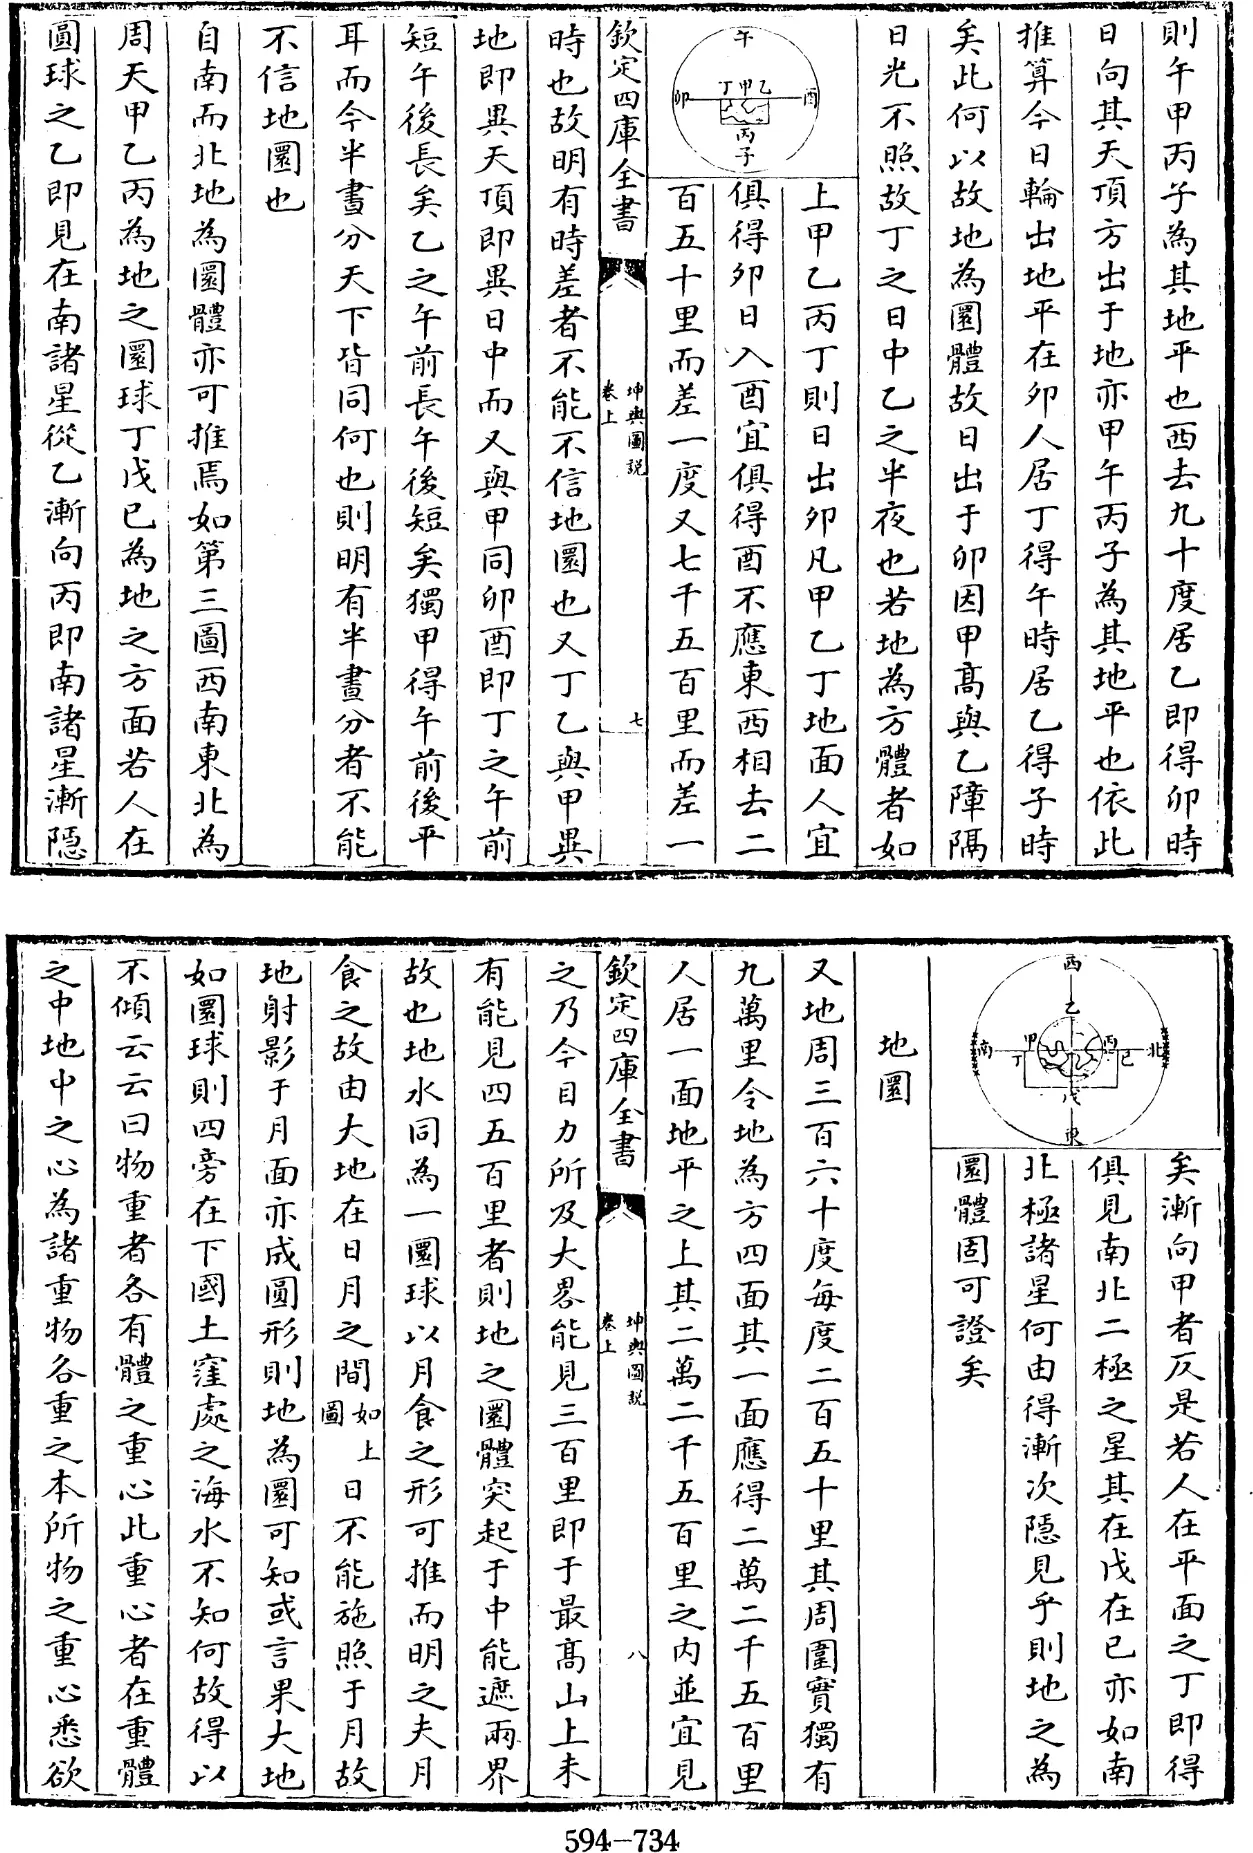 則午甲丙子為其地平也西去九十度居乙即得卯時
日向其天頂方出于地亦甲午丙子為其地平也依此
推算今日輪出地平在卯人居丁得午時居乙得子時
矣此何以故地為圜體故日出于卯因甲髙與乙障隔
日光不照故丁之日中乙之半夜也若地為方體者如
午
丁甲乙
卯
酉
丙
子
上甲乙丙丁則日出卯凡甲乙丁地面人宜
俱得卯日入酉宜俱得酉不應東西相去二
百五十里而差一度又七千五百里而差一
欽定四庫全書
坤輿圖説
卷上
七
時也故明有時差者不能不信地圜也又丁乙與甲異
地即異天頂即異日中而又與甲同卯酉即丁之午前
短午後長矣乙之午前長午後短矣獨甲得午前後平
耳而今半晝分天下皆同何也則明有半晝分者不能
不信地圜也
自南而北地為圜體亦可推焉如第三圖西南東北為
周天甲乙丙為地之圜球丁戊已為地之方面若人在
圓球之乙即見在南諸星從乙漸向丙即南諸星漸隱
西
乙
南
甲
丁
丙
已
北
戊
東
矣漸向甲者反是若人在平面之丁即得
俱見南北二極之星其在戊在已亦如南
北極諸星何由得漸次隱見乎則地之為
圜體固可證矣
地圜
又地周三百六十度每度二百五十里其周圍實獨有
九萬里令地為方四面其一面應得二萬二千五百里
人居一面地平之上其二萬二千五百里之内並宜見
欽定四庫全書
坤輿圖説
卷上
八
之乃今目力所及大畧能見三百里即于最髙山上未
有能見四五百里者則地之圜體突起于中能遮兩界
故也地水同為一圜球以月食之形可推而明之夫月
食之故由大地在日月之間如上圖日不能施照于月故
地射影于月面亦成圓形則地為圜可知或言果大地
如圜球則四旁在下國土窪處之海水不知何故得以
不傾云云曰物重者各有體之重心此重心者在重體
之中地中之心為諸重物各重之本所物之重心悉欲
594-734